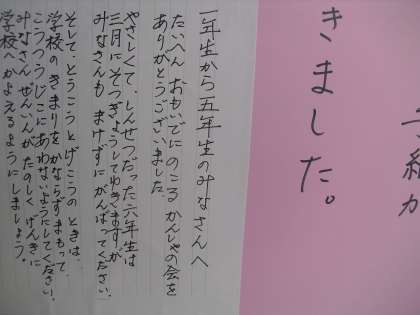 一組が
きました。
一年生から五年生のみなさんへ
たいへん おもいでにのこる かんしゃの会を
ありがとうございました。
やさしくて、しんせつだった六年生は
三月にそつぎょうしてゆきますが
みなさんも まけずにがんばってください。
そして、とうこうとげこうのときは、
学校のきまりをかならずまもって、
こうつうじこにあわないようにしてください。
みなさんぜんいんがたのしくげんきに
学校へかよえるようにしましょう。